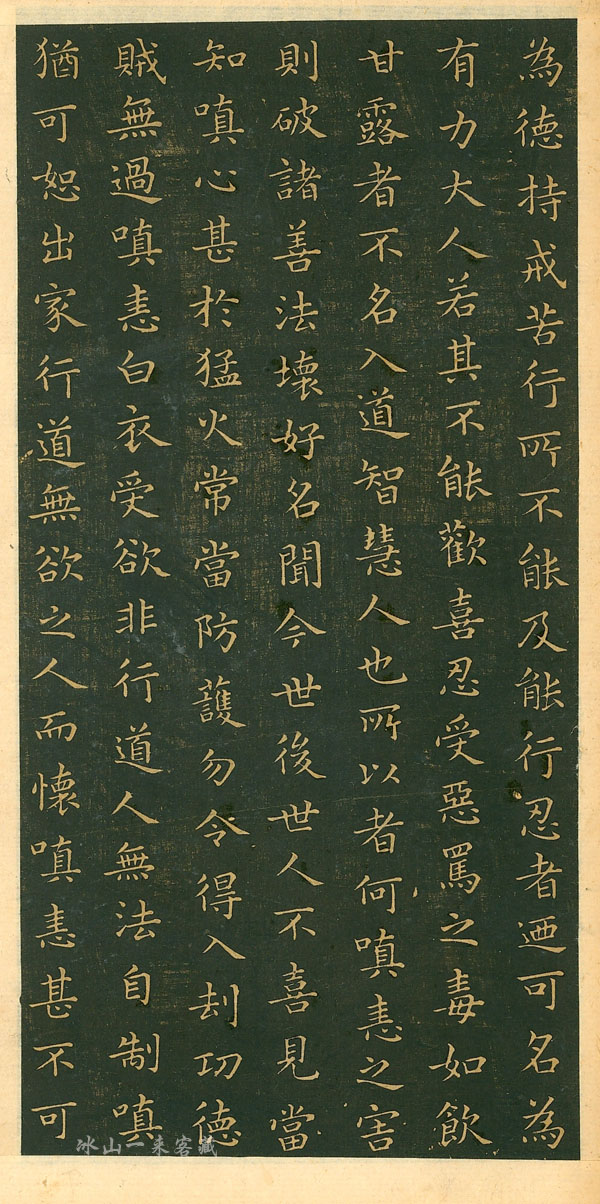 為德持戒苦行所不能及能行忍者迺可名為
有力大人若其不能歡喜忍受惡罵之毒如飲
甘露者不名入道智慧人也所以者何嗔恚之害
則破諸善法壞好名聞今世後世人不喜見當
知嗔心甚於猛火常當防護勿令得入刦功德
賊無過嗔恚白衣受欲非行道人無法自制嗔
猶可恕出家行道無欲之人而懷嗔恚甚不可
冰山一来客藏